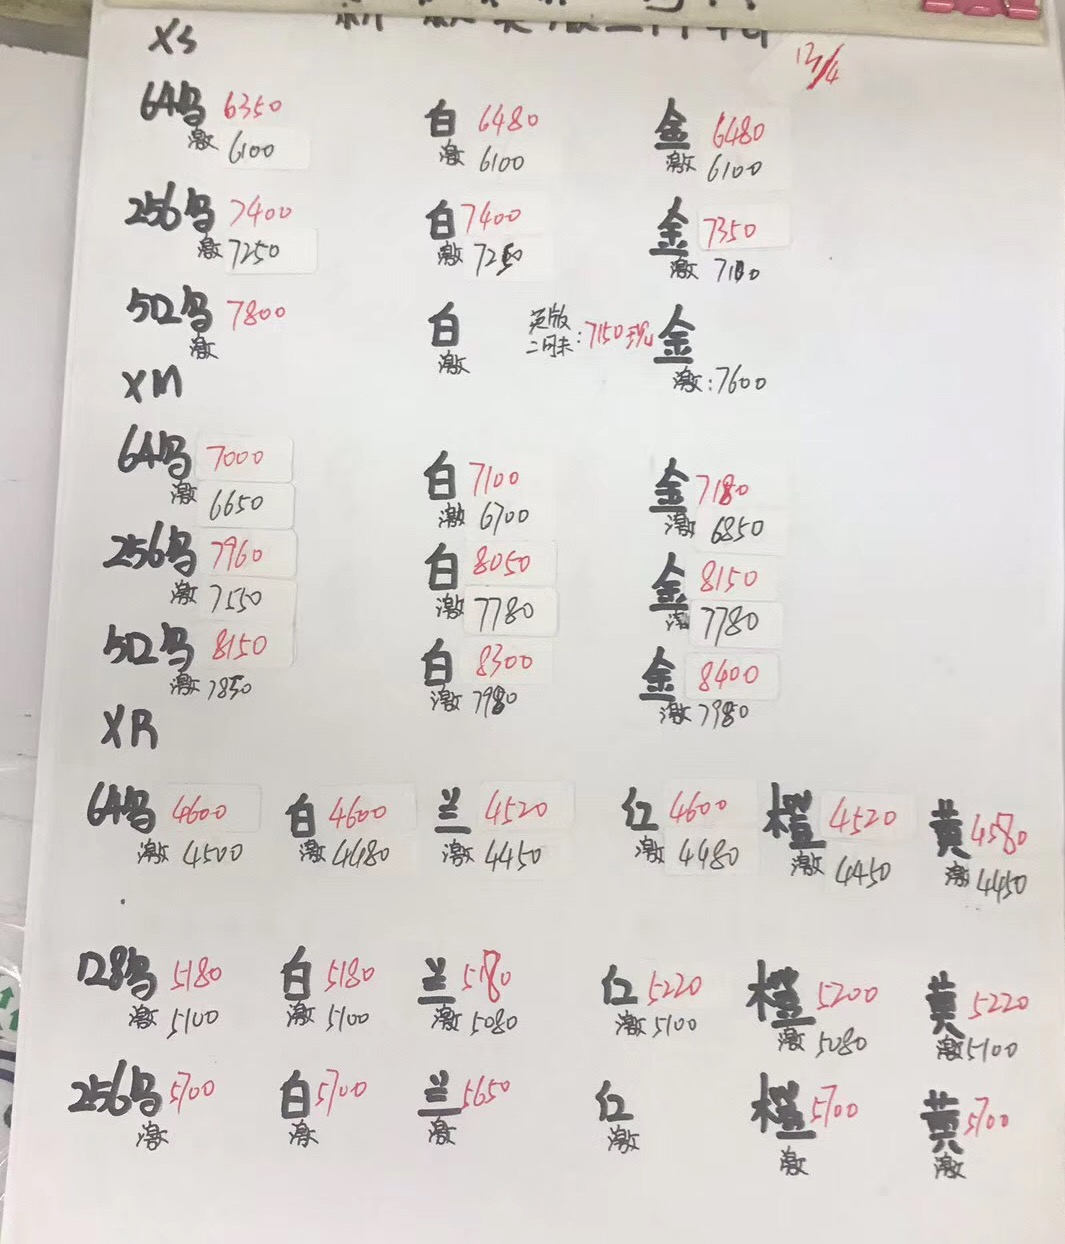 XS
12/4
64乌 6350 白 6480 金 6480
激 6100 激 6100 激 6100
256乌 7400 白 7400 金 7350
激 7250 激 7250 激 7100
512乌 7800 白 英版 金
激 激 二网未:7150 激:7600
XM
64乌 7000 白 7100 金 7180
激 6650 激 6700 激 6850
256乌 7960 白 8050 金 8150
激 7550 激 7780 激 7780
512乌 8150 白 8300 金 8400
激 7850 激 7980 激 7980
XR
64乌 4600 白 4600 兰 4520 红 4600 橙 4520 黄 4580
激 4500 激 4480 激 4450 激 4480 激 4450 激 4450
128乌 5180 白 5180 兰 5180 红 5220 橙 5200 黄 5220
激 5100 激 5100 激 5080 激 5100 激 5080 激 5100
256乌 5700 白 5700 兰 5650 红 橙 5700 黄 5700
激 激 激 激 激 激